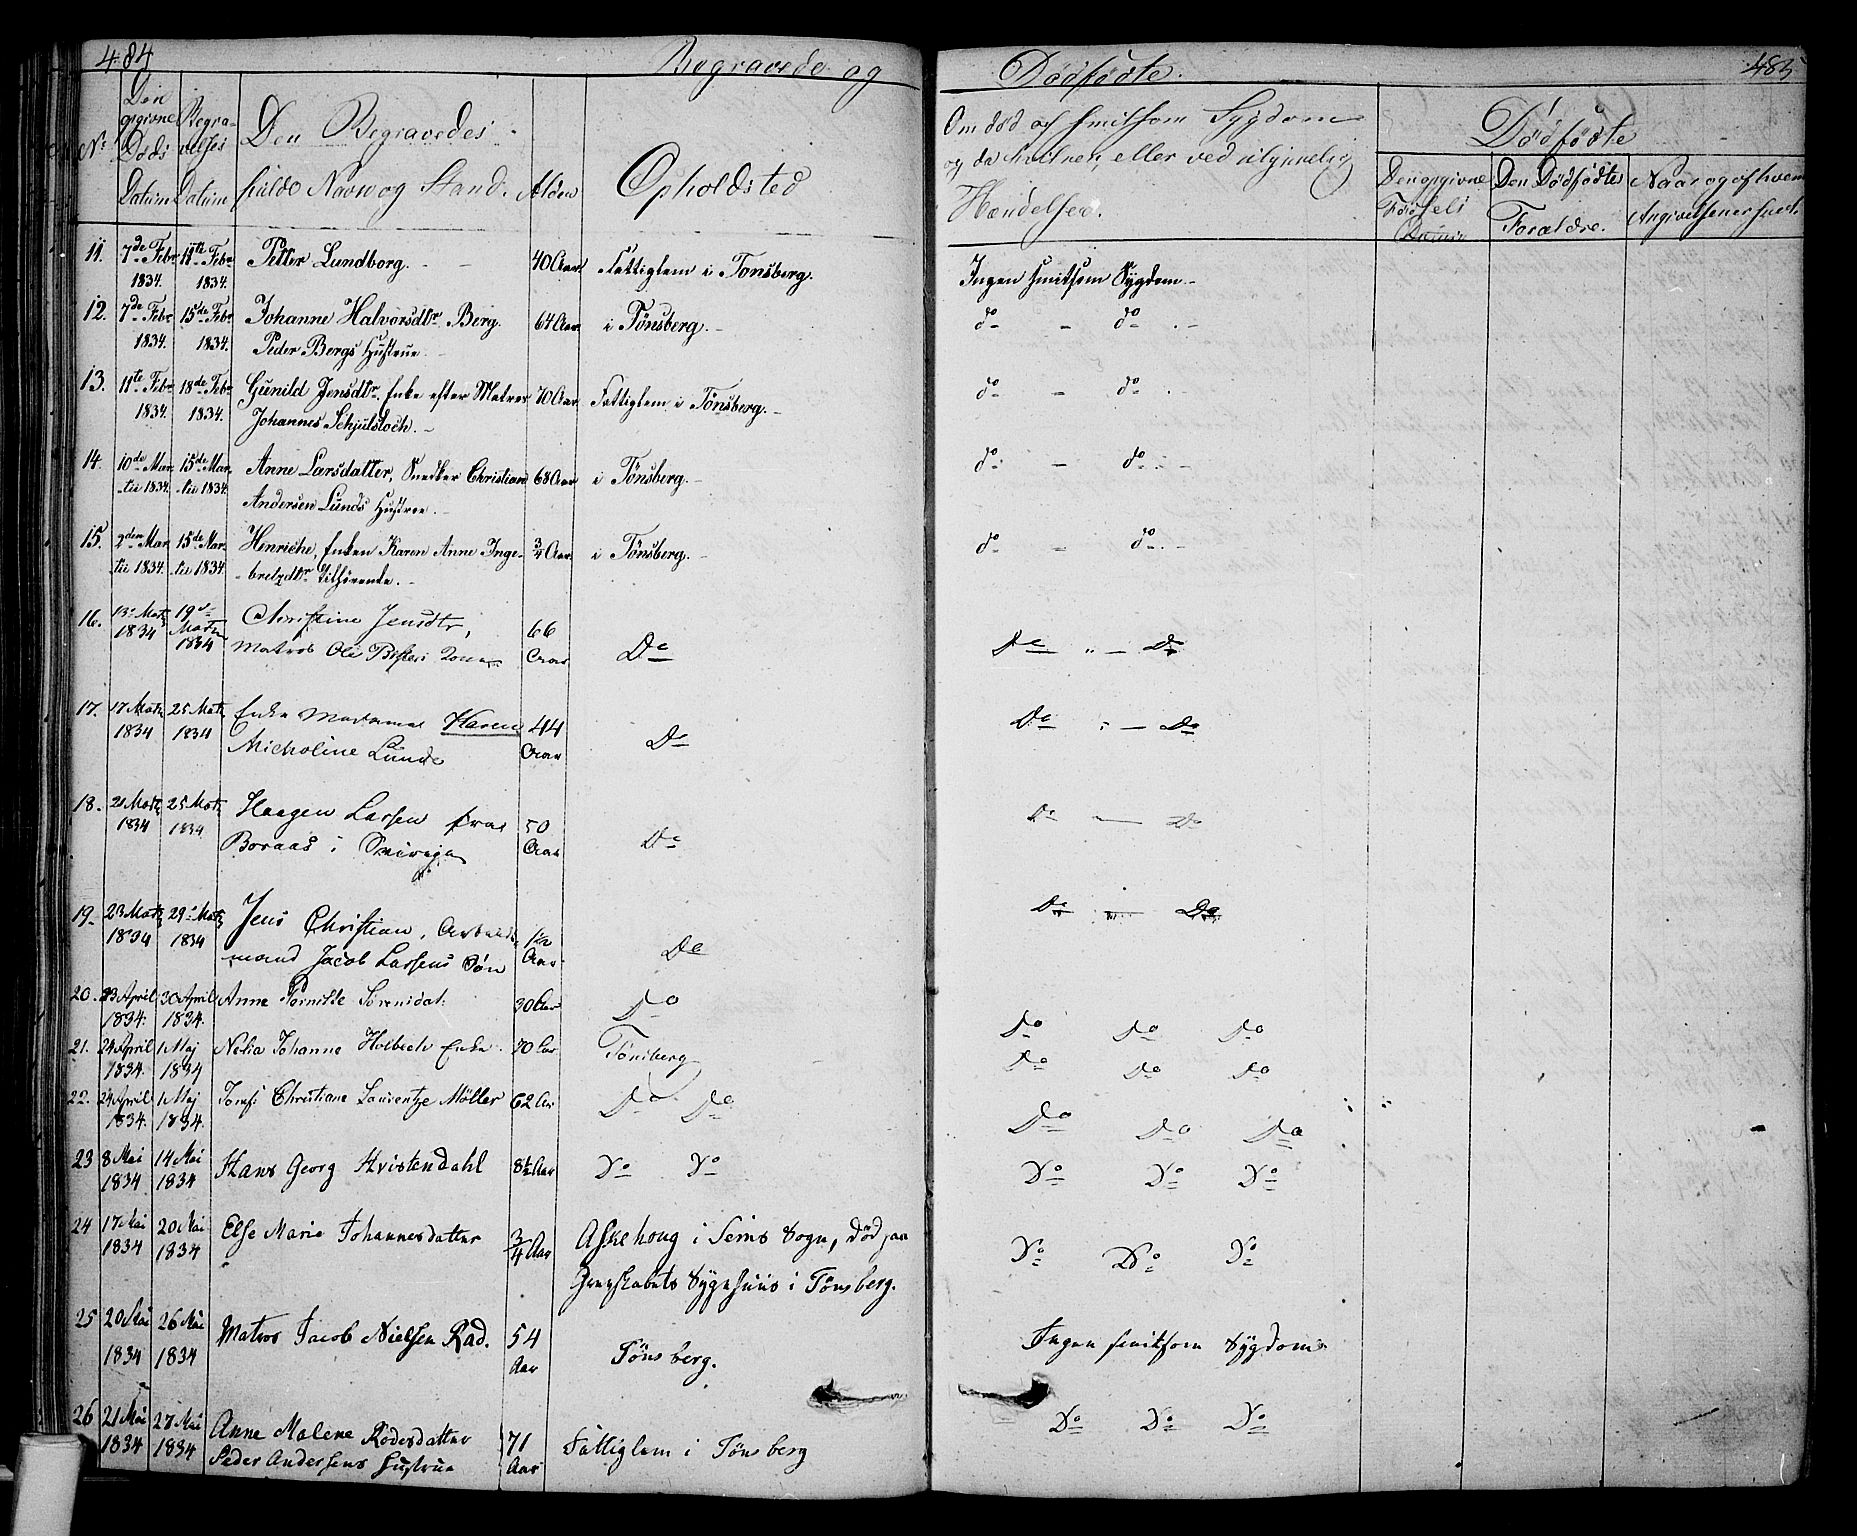 484
Begravede og
Dødfødte.
485
No
Den opgivne Døds Datum
Begravelses Datum
Den Begravedes fulde Navn og Stand.
Alder
Opholdsted
Om død af smitsom Sygdom
og da hvilken, eller ved ulykkelig
Hændelse.
Dødfødte
Den opgivne Fødsels Datum
Den Dødfødtes Forældre.
Naar og af hvem Angivelsen er skeet.
11. 7de Febr 1834. 11te Febr 1834. Petter Lundborg. 40 Aar Fattiglem i Tønsberg. Ingen smitsom Sygdom
12. 7de Febr 1834. 15de Febr 1834. Johanne Halvorsdtr Berg. 64 Aar i Tønsberg. do do
Peder Bergs Hustrue.
13. 11te Febr 1834. 18de Febr 1834. Gunild Jensdtr. Enke efter Matros 70 Aar Fattiglem i Tønsberg. do do
Johannes
14. 10de Martii 1834. 15de Martii 1834. Anne Larsdatter, Snedker Christian 68 Aar i Tønsberg. do do
Andersen Lunds Hustrue.
15. 2den Martii 1834. 15de Martii 1834. Henriche, Enken Karen Anne Inge- 3/4 Aar i Tønsberg. do do
bretzdtr tilhørende.
16. 13 Martz 1834 19de Martz 1834 Christine Jensdtr, 66 Aar Do Do " Do
Matros Ole Kone
17. 17 Martz 1834 25 Martz 1834 Enke Madame Karen 44 Aar Do Do Do
Micholine Lunde
18. 21 Martz 1834 25 Martz 1834 Haagen Larsen fra 50 Aar Do Do Do
Boraas i
19. 23 Martz 1834 29 Martz 1834 Jens Christian, Arbeids- 1 1/2 Aar Do Do Do
mand Jacob Larsens Søn
20. 23 April 1834. 30 April 1834. Anne Pernille Sørensdat: 30 Aar Do Do Do Do
21. 24 April 1834. 1 Maj 1834 Johanne Holbech Enke. 70 Aar Tønsberg Do Do Do
22. 24 April 1834. 1 Maj 1834. Jomf: Christiane Laurentze Møller 62 Aar Do Do Do Do Do
23 8 Mai 1834 14 Mai 1834 Hans Georg Kristendahl 8 1/2 Aar Do Do Do Do Do
24 17 Mai 1834 20 Mai 1834 Else Marie Johannesdatter 3/4 Aar Askehoug i Sems Sogn, død paa Do Do Do
Grevskabets Sygehuus i Tønsberg.
25 20 Mai 1834 26 Mai 1834 Matros Jacob Nielsen Rad. 54 Aar Tønsberg. Ingen smitsom Sygdom
26 21 Mai 1834 27 Mai 1834 Anne Malene Rødersdatter 71 Aar Fattiglem i Tønsberg Do Do Do
Peder Andersens Hustrue